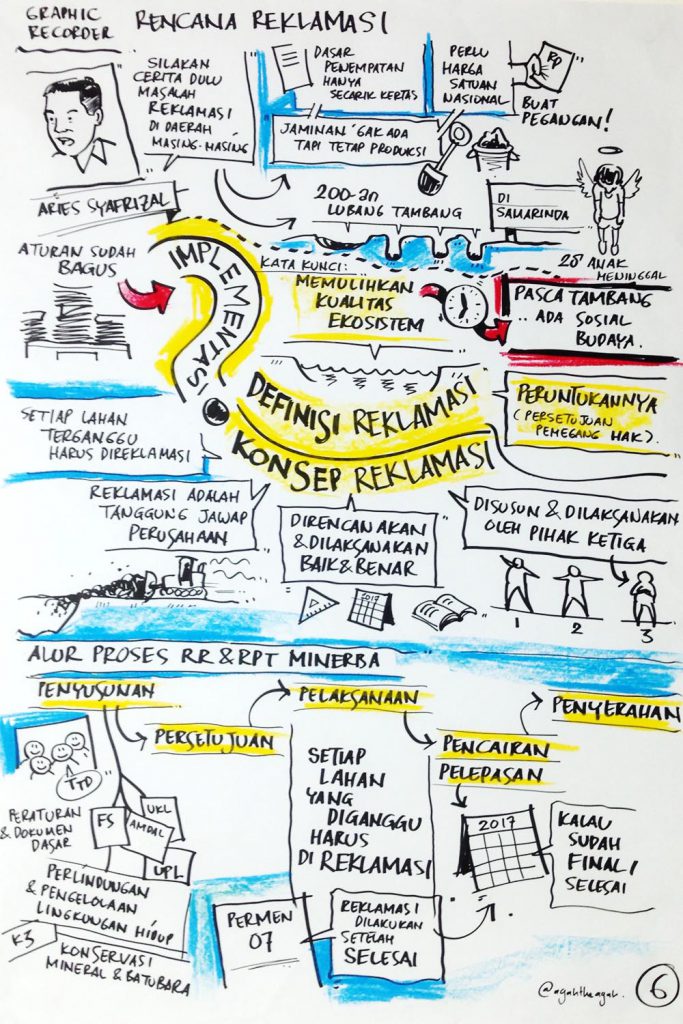 GRAPHIC
RECORDER
RENCANA REKLAMASI
SILAKAN
CERITA DULU
MASALAH
REKLAMASI
DI DAERAH
MASING-MASING
DASAR
PENEMPATAN
HANYA
SECARIK KERTAS
PERLU
HARGA
SATUAN
NASIONAL
RP
BUAT
PEGANGAN!
JAMINAN 'GAK ADA
TAPI TETAP PRODUKSI
ARIES SYAFRIZAL
200-an
LUBANG TAMBANG
DI
SAMARINDA
28 ANAK
MENINGGAL
ATURAN SUDAH
BAGUS
IMPLEMENTASI
KATA KUNCI:
MEMULIHKAN
KUALITAS
EKOSISTEM
PASCA TAMBANG
.. ADA SOSIAL
BUDAYA.
DEFINISI REKLAMASI
KONSEP REKLAMASI
PERUNTUKANNYA
(PERSETUJUAN
PEMEGANG HAK).
SETIAP LAHAN
TERGANGGU
HARUS DIREKLAMASI
REKLAMASI ADALAH
TANGGUNG JAWAP
PERUSAHAAN
DIRENCANAKAN
& DILAKSANAKAN
BAIK & BENAR
2017
DISUSUN & DILAKSANAKAN
OLEH PIHAK KETIGA
1 2 3
ALUR PROSES RR & RPT MINERBA
PENYUSUNAN
PERSETUJUAN
PELAKSANAAN
PENCAIRAN
PELEPASAN
PENYERAHAN
TTD
PERATURAN
& DOKUMEN
DASAR
FS
UKL
AMDAL
UPL
PERLINDUNGAN
& PENGELOLAAN
LINGKUNGAN HIDUP
K3
KONSERVASI
MINERAL & BATUBARA
SETIAP
LAHAN
YANG
DIGANGGU
HARUS
DI REKLAMASI
PERMEN
07
REKLAMASI
DILAKUKAN
SETELAH
SELESAI
2017
KALAU
SUDAH
FINAL/
SELESAI
@agahtheagah.
6